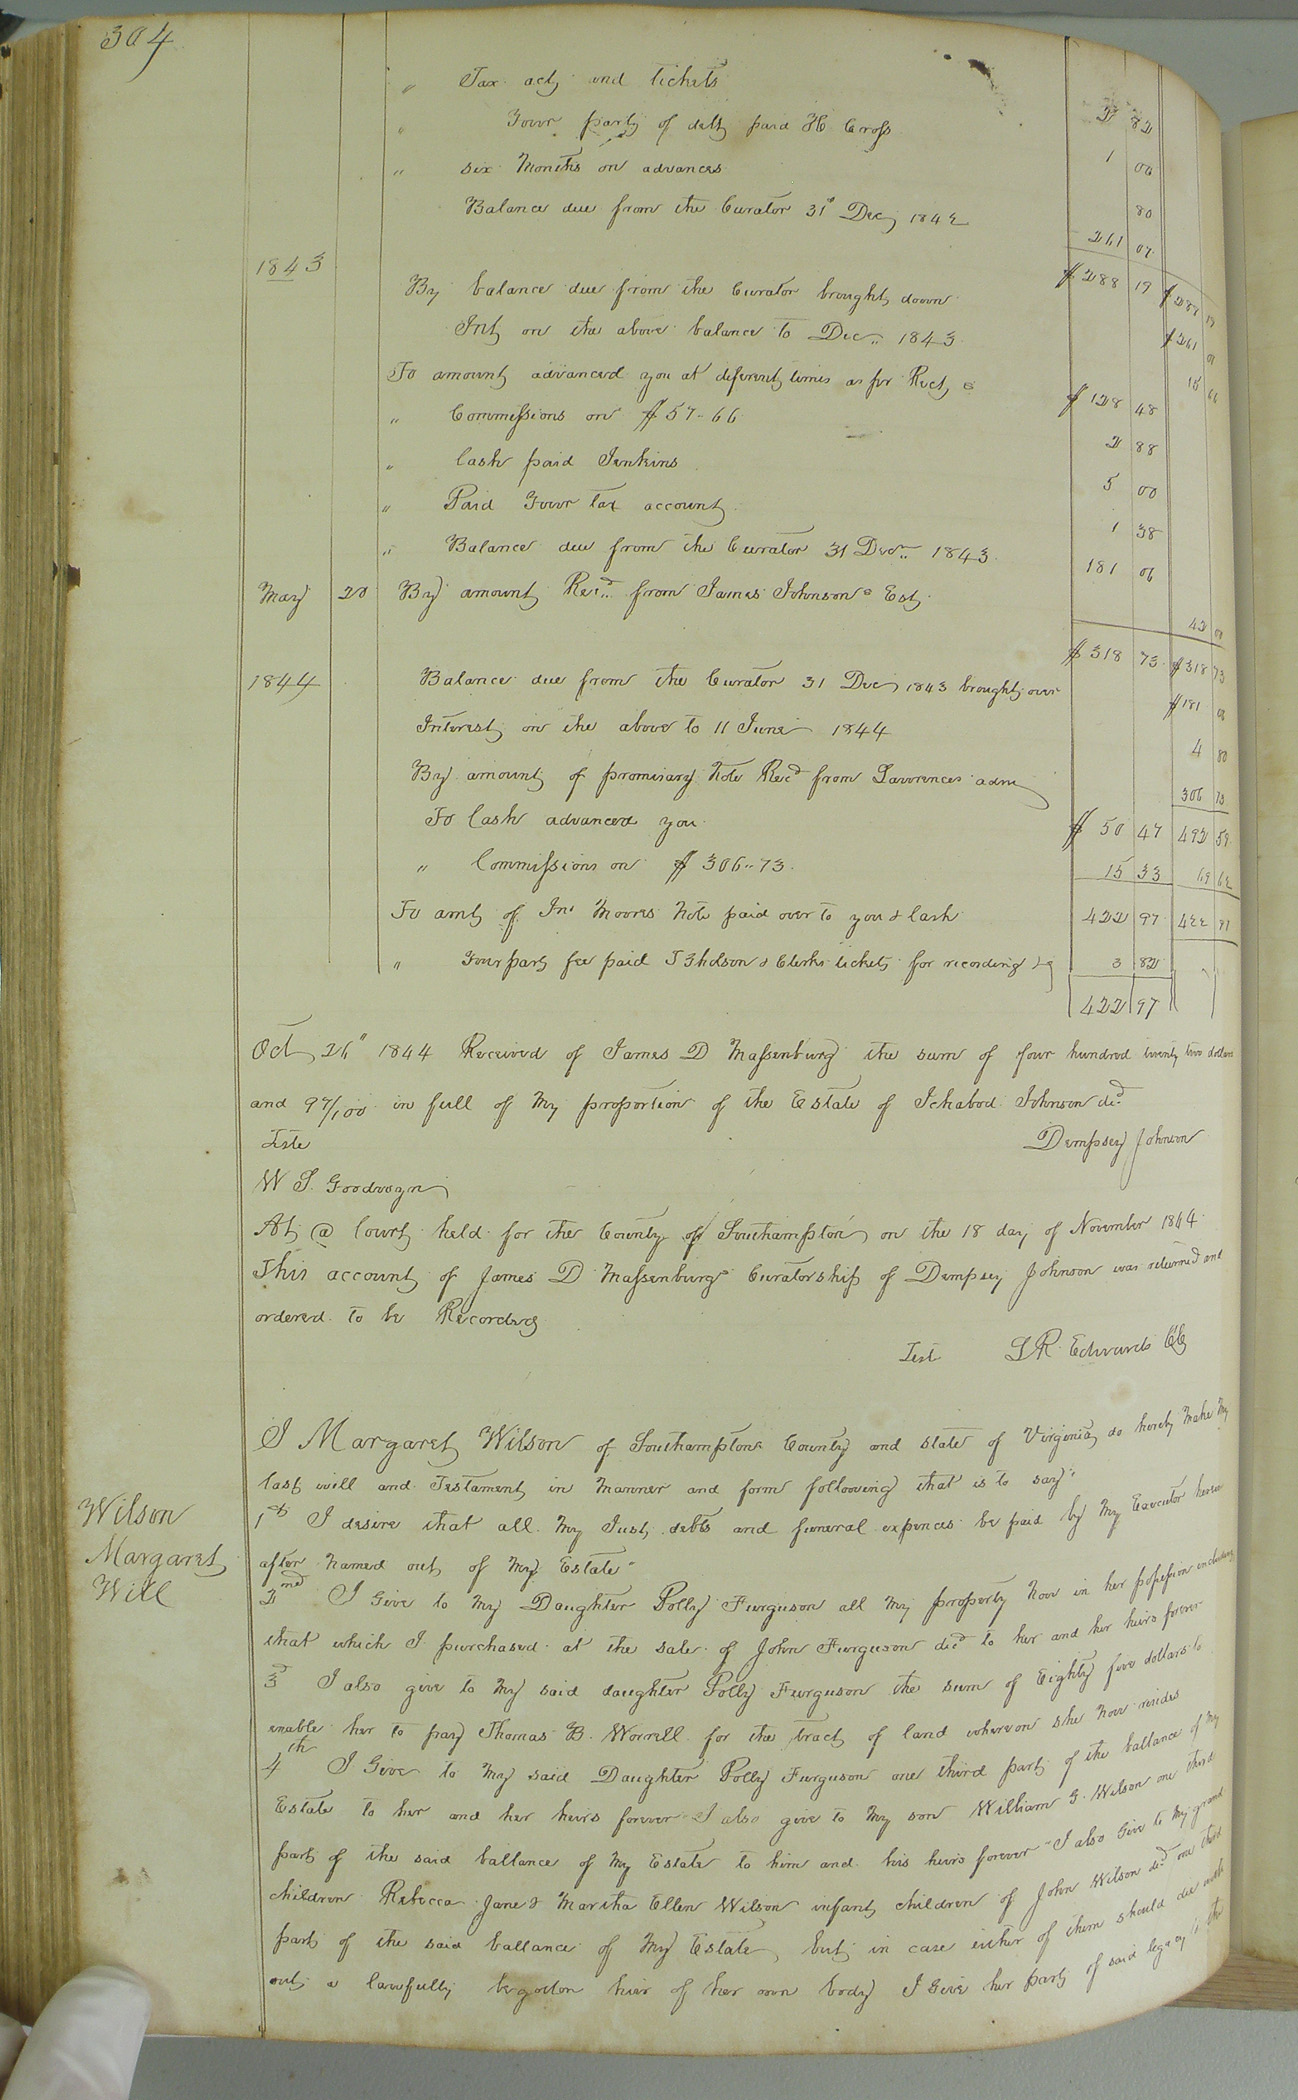 304
" Tax act and tickets 2 82
" Your part of debt paid H Cross 1 00
" six Months on advances 80
Balance due from the Curator 31st Dec 1842 261 07
$288 19 $288 19
1843 By balance due from the Curator brought down $261 07
Int on the above balance to Dec.. 1843 15 66
To amount advanced you at diferent times as per Rects $128 48
" Commissions on $57-66 2 88
" Cash paid Jenkins 5 00
" Paid Your tax account 1 38
" Balance due from the Curator 31 Dec.. 1843 181 06
May 20 By amount Recd. from James Johnsons Est 42 01
$318 73 $318 73
1844 Balance due from the Curator 31 Dec 1843 brought over $181 06
Interest on the above to 11 June 1844 4 80
By amount of promisary Note Recd from Lawrences adm 306 73
To Cash advanced you $50 47 492 59
" Commissions on $306..73 15 33 69 62
To amt of Jno Moores Note paid over to you & Cash 422 97 422 97
" Your part fee paid & Clerks tickets for recording &c 3 82
422 97
Oct 26" 1844 Received of James D Massenburg the sum of four hundred twenty two dollars
and 97/100 in full of My proportion of the Estate of Ichabod Johnson decd
Teste Dempsey Johnson
W S. Goodwyn
At @ Court held for the County of Southampton on the 18 day of November 1844
This account of James D Massenburgs Curatorship of Dempsey Johnson was returned and
ordered to be Recorded
Test L R Edwards CC
Wilson
Margaret
Will
I Margaret Wilson of Southampton County and state of Virginia do hereby Make My
last will and Testament in Manner and form following that is to say:
1st I desire that all My Just debts and funeral expences be paid by My Executor herein
after Named out of My Estate
2nd I Give to My Daughter Polly Furguson all My property Now in her possession including
that which I purchased at the sale of John Furguson decd to her and her heirs forever
3d I also give to My said daughter Polly Furguson the sum of Eighty five dollars to
enable her to pay Thomas B. Worrell for the tract of land whereon she Now resides
4th I Give to My said Daughter Polly Furguson one third part of the ballance of My
Estate to her and her heirs forever I also give to My son William G. Wilson one third
part of the said ballance of My Estate to him and his heirs forever I also Give to My grand
children Rebecca Jane & Martha Ellen Wilson infant children of John Wilson decd one third
part of the said ballance of My Estate, but in case either of them should die with
out a lawfully begotton hier of her own body I Give her part of said legacy to the